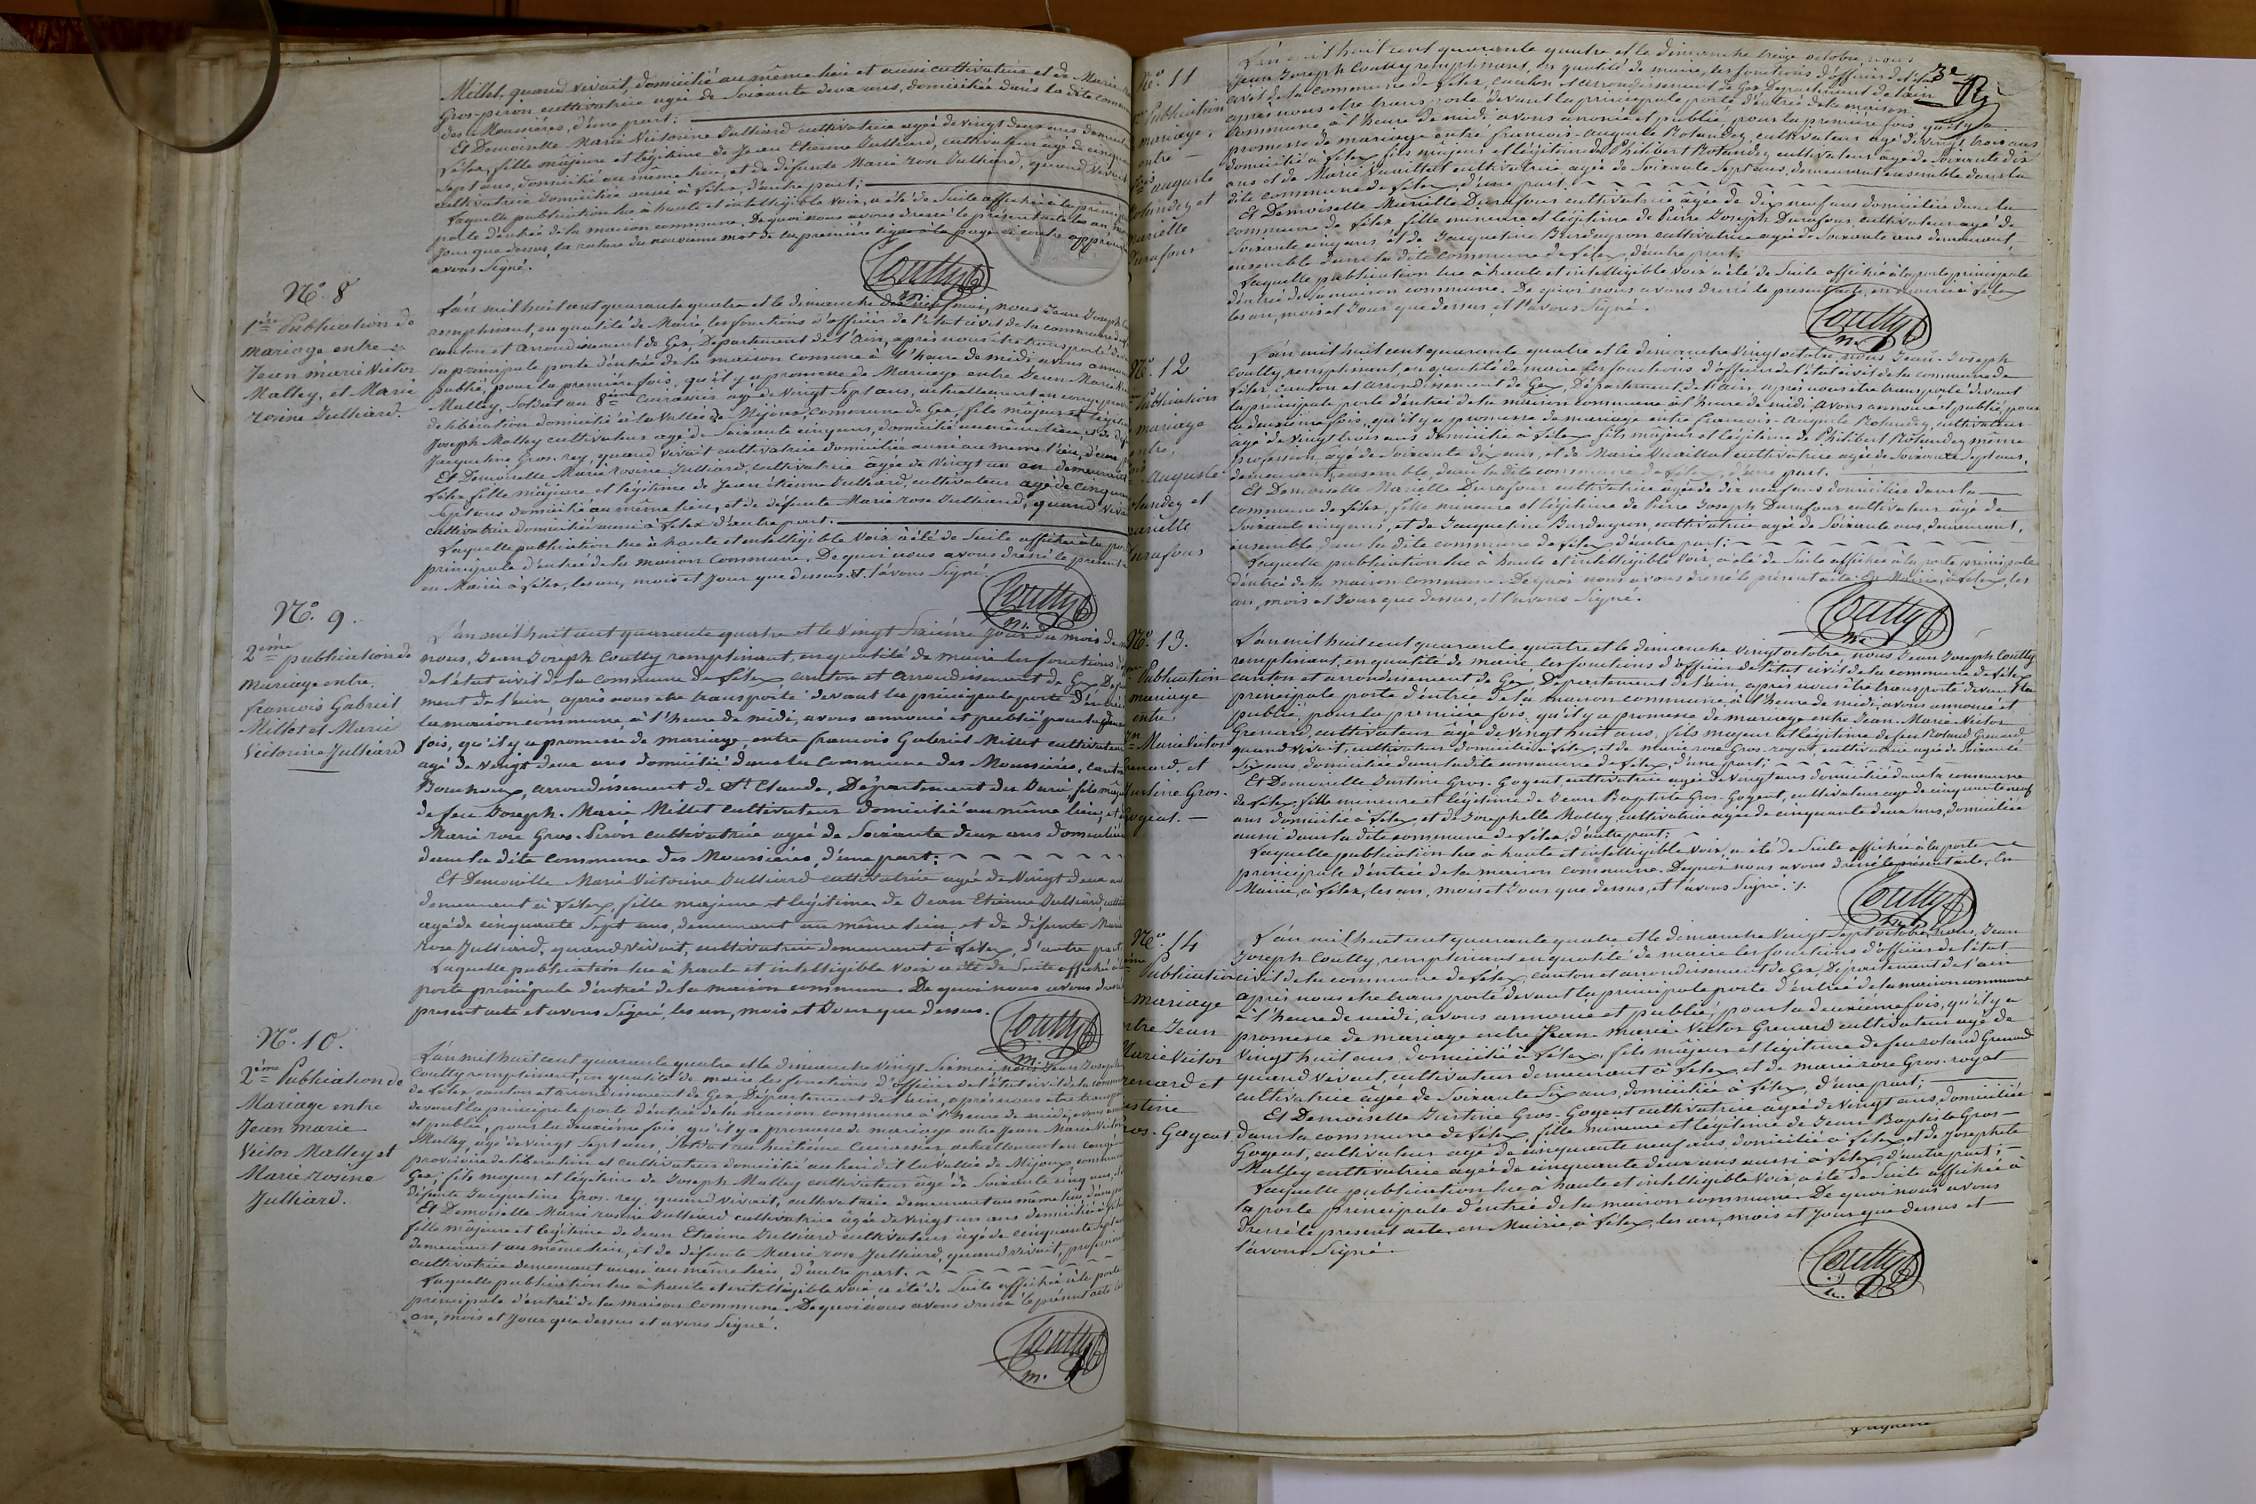 Millet, quand vivait, domicilié au même lieu et aussi cultivateur et de Marie
Gros-piron cultivatrice agée de Soixante deux ans, domiciliée dans la dite
des Moussières, d'une part;
Et Demoiselle Marie Victorine Julliard cultivatrice agée de vingt deux ans
Lélex, fille majeure et légitime de Jean Etienne Julliard, cultivateur agé de cinquante
Sept ans, domicilié au même lieu, et de défunte Marie rose Julliard, quand vivait
cultivatrice domiciliée aussi à Lélex, d'autre part;
Laquelle publication lue à haute et intelligible voix, a été de Suite affichée à la
porte d'entrée de la maison commune. De quoi nous avons dressé le présent acte les an, mois
Jour que dessus, la rature du neuvième mot de la première ligne à la page ci contre
avons Signé.
Coutty
m.
N.º 8
1ère Publication de
mariage entre
Jean marie Victor
Malley, et Marie
rosine Julliard.
L'an mil huit cent quarante quatre et le dimanche dix neuf mai, nous Jean Joseph
remplissant, en qualité de Maire, les fonctions d'officier de l'état civil de la commune de
canton et arrondissement de Gex, Département de l'Ain, après nous être transporté
la principale porte d'entrée de la maison commune à l'heure de midi avons
publié, pour la première fois, qu'il y a promesse de Mariage entre Jean Marie
Malley, Soldat au 8ème Cuirassier agé de Vingt Sept ans, actuellement en congé
de libération domicilié à la Vallée de Mijoux, commune de Gex, fils majeur et
Joseph Malley cultivateur agé de Soixante cinq ans, domicilié au même lieu, et de
Jacqueline Gros-rey, quand vivait cultivatrice domiciliée aussi au même lieu, d'une
Et Demoiselle Marie rosine Julliard, cultivatrice âgée de Vingt un an demeurant
Lélex fille majeure et légitime de Jean étienne Julliard, cultivateur agé de cinquante
Sept ans domicilié au même lieu, et de défunte Marie rose Julliard, quand
cultivatrice domiciliée aussi à Lélex d'autre part.
Laquelle publication lue à haute et intelligible Voix a été de Suite affichée à la
principale d'entrée de la maison commune. De quoi nous avons dressé le présent
en Mairie à Lélex, les an, mois et jour que dessus. et l'avons Signé.
Coutty
m.
N.º 9.
2ème publication de
Mariage entre
francois Gabriel
Millet et Marie
Victorine Julliard
L'an mil huit cent quarante quatre et le Vingt Sixième jour du mois de
nous, Jean Joseph Coutty remplissant, en qualité de maire les fonctions
de l'état civil de la commune de Lélex canton et arrondissement de Gex
ment de l'ain, après nous être transporté devant la principale porte
la maison commune à l'heure de midi, avons annoncé et publié pour la
fois, qu'il y a promesse de mariage, entre francois Gabriel Millet cultivateur
agé de Vingt deux ans domicilié dans la commune des Moussières, canton
Bouchoux, arrondissement de St Claude, Département du Jura, fils
de feu Joseph Marie Millet cultivateur domicilié au même lieu, et
Marie rose Gros-Piron cultivatrice agée de Soixante deux ans
dans la dite commune des Moussières, d'une part;
Et Demoiselle Marie Victorine Julliard cultivatrice agée de Vingt deux
demeurant à Lélex, fille majeure et légitime de Jean Etienne Julliard
agé de cinquante Sept ans, demeurant au même lieu, et de défunte
rose Julliard, quand vivait, cultivatrice demeurant à Lélex, d'autre part
Laquelle publication lue à haute et intelligible Voix a été de Suite affichée
porte principale d'entrée de la maison commune. De quoi nous avons
présent acte et avons Signé, les an, mois et Jour que dessus.
Coutty
m.
N.º 10.
2ème Publication de
Mariage entre
Jean marie
Victor Malley et
Marie rosine
Julliard.
L'an mil huit cent quarante quatre et le dimanche vingt Six mai nous Jean Joseph
Coutty remplissant, en qualité de maire les fonctions d'officier de l'état civil de la commune
de Lélex, canton et arrondissement de Gex, Département de l'ain, après nous être
devant la principale porte d'entrée de la maison commune à l'heure de midi, avons
et publié, pour la deuxième fois qu'il y a promesse de mariage entre Jean Marie Victor
Malley, agé de vingt Sept ans, Soldat au huitième Cuirassier actuellement en congé
provisoire de libération et cultivateur domicilié au lieu dit la Vallée de Mijoux, commune
Gex; fils majeur et légitime de Joseph Malley cultivateur âgé de Soixante cinq ans,
défunte Jacqueline Gros-rey, quand vivait, cultivatrice demeurant au même lieu
Et Demoiselle Marie rosine Julliard cultivatrice âgée de vingt un ans domiciliée à
fille majeure et légitime de Jean Etienne Julliard cultivateur agé de cinquante Sept
demeurant au même lieu, et de défunte Marie rose Julliard, quand vivait,
cultivatrice demeurant aussi au même lieu d'autre part.
Laquelle publication lue à haute et intelligible Voix a été de Suite affichée à la porte
principale d'entrée de la maison commune. De quoi nous avons dressé le présent acte les
an, mois et jour que dessus et avons Signé.
Coutty
m.
3e
N.º 11
Publication
mariage,
entre
auguste
Rolandez et
Marielle
Durafour
L'an mil huit cent quarante quatre et le dimanche treize octobre, nous
Jean Joseph Coutty remplissant, en qualité de maire, les fonctions d'officier de l'état
civil de la commune de Lélex, canton et arrondissement de Gex Département de l'ain
après nous être transporté devant la principale porte d'entrée de la maison
commune à l'heure de midi avons annoncé et publié, pour la première fois, qu'il y a
promesse de mariage entre francois-auguste Rolandez, cultivateur agé de Vingt trois ans
domicilié à Lélex, fils majeur et légitime de Philibert Rolandez cultivateur agé de Soixante dix
ans et de Marie Vuaillat cultivatrice agée de Soixante Sept ans, demeurant ensemble dans la
dite commune de Lélex, d'une part.
Et Demoiselle Marielle Durafour cultivatrice âgée de dix neuf ans domiciliée dans la
commune de Lélex fille mineure et légitime de Pierre Joseph Durafour cultivateur agé de
Soixante cinq ans et de Jacqueline Burdayron cultivatrice agée de Soixante ans demeurant
ensemble dans la dite commune de Lélex, d'autre part.
Laquelle publication lue à haute et intelligible Voix a été de Suite affichée à la porte principale
d'entrée de la maison commune. De quoi nous avons dressé le présent acte, en mairie à Lélex
les an, mois et Jour que dessus, et l'avons Signé.
Coutty
m.
N.º 12
Publication
mariage
entre,
Auguste
Rolandez et
Marielle
Durafour
L'an mil huit cent quarante quatre et le dimanche Vingt octobre, nous Jean-Joseph
Coutty, remplissant, en qualité de maire les fonctions d'officier de l'état civil de la commune de
Lélex canton et arrondissement de Gex, Département de l'ain, après nous être transporté devant
la principale porte d'entrée de la maison commune à l'heure de midi, avons annoncé et publié, pour
la deuxième fois, qu'il y a promesse de mariage entre francois-Auguste Rolandez, cultivateur
agé de Vingt trois ans domicilié à Lélex, fils majeur et légitime de Philibert Rolandez même
profession, agé de Soixante dix ans, et de Marie Vuaillat cultivatrice agée de Soixante Sept ans,
demeurant ensemble, dans la dite commune de Lélex, d'une part.
Et Demoiselle Marielle Durafour cultivatrice agée de dix neuf ans domiciliée dans la
commune de Lélex, fille mineure et légitime de Pierre Joseph Durafour cultivateur âgé de
Soixante cinq ans, et de Jacqueline Burdayron, cultivatrice agée de Soixante ans, demeurant,
ensemble dans la dite commune de Lélex d'autre part;
Laquelle publication lue à haute et intelligible Voix, a été de Suite affichée à la porte principale
d'entrée de la maison commune. De quoi nous avons dressé le présent acte en Mairie, à Lélex, les
an, mois et Jour que dessus, et l'avons Signé.
Coutty
m.
N.º 13.
Publication
mariage
entre
Jn Marie Victor
Grenard, et
Justine Gros-
Gogeat.
L'an mil huit cent quarante quatre et le dimanche Vingt octobre, nous Jean Joseph Coutty
remplissant, en qualité de maire, les fonctions d'officier de l'état civil de la commune de Lélex
canton et arrondissement de Gex, Département de l'ain, après nous être transporté devant la
principale porte d'entrée de la maison commune à l'heure de midi, avons annoncé et
publié, pour la première fois, qu'il y a promesse de mariage entre Jean-Marie Victor
Grenard, cultivateur âgé de Vingt huit ans, fils majeur et légitime de feu Roland Grenard
quand vivait, cultivateur domicilié à Lélex, et de marie rose Gros-royat, cultivatrice agée de Soixante
Six ans, domiciliée dans la dite commune de Lélex, d'une part;
Et Demoiselle Justine Gros-Gogeat, cultivatrice agée de Vingt ans, domiciliée dans la commune
de Lélex, fille mineure et légitime de Jean Baptiste Gros-Gogeat, cultivateur agé de cinquante neuf
ans domicilié à Lélex, et de Josephelle Malley, cultivatrice agée de cinquante deux ans, domiciliée
aussi dans la dite commune de Lélex, d'autre part;
Laquelle publication lue à haute et intelligible Voix, a été de Suite affichée à la porte
principale d'entrée de la maison commune. De quoi nous avons dressé le présent acte, En
Mairie, à Lélex, les an, mois et Jour que dessus, et l'avons Signé.
Coutty
N.º 14
Publication
mariage
entre Jean
Marie Victor
Grenard et
Justine
Gros-Gogeat.
L'an mil huit cent quarante quatre et le dimanche Vingt Sept octobre, nous, Jean
Joseph Coutty, remplissant en qualité de maire les fonctions d'officier de l'état
civil de la commune de Lélex, canton et arrondissement de Gex, Département de l'ain
après nous être transporté devant la principale porte d'entrée de la maison commune
à l'heure de midi, avons annoncé et publié, pour la deuxième fois, qu'il y a
promesse de mariage entre Jean Marie-Victor Grenard cultivateur agé de
Vingt huit ans, domicilié à Lélex, fils majeur et légitime de feu roland Grenard
quand vivait, cultivateur demeurant à Lélex, et de marie rose Gros-royat
cultivatrice âgée de Soixante Six ans, domiciliée à Lélex, d'une part;
Et Demoiselle Justine Gros-Gogeat cultivatrice âgée de Vingt ans, domiciliée
dans la commune de Lélex, fille mineure et légitime de Jean Baptiste Gros-
Gogeat, cultivateur agé de cinquante neuf ans, domicilié à Lélex et de Josephele
Malley cultivatrice âgée de cinquante deux ans aussi à Lélex d'autre part;
Laquelle publication lue à haute et intelligible Voix a été de Suite affichée à
la porte principale d'entrée de la maison commune. De quoi nous avons
dressé le présent acte, en Mairie à Lélex, les an, mois et Jour que dessus et
l'avons Signé.
Coutty